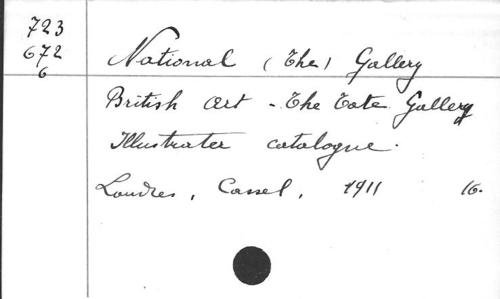 723
672
6
National (The) Gallery
British Art - The Tate Gallery
Illustrater catalogue.
Londres, Cassel, 1911 16.